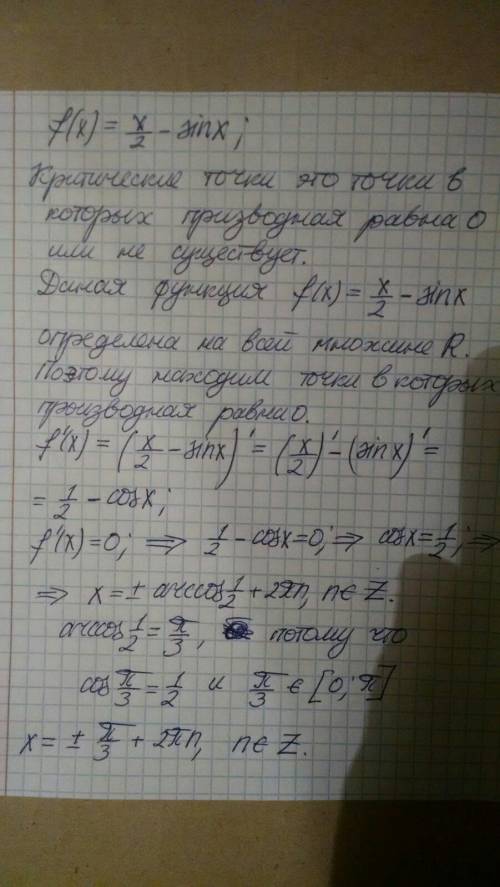 f(x) = x/2 - sinx;
Критические точки это точки в
которых призводная равна 0
или не существует.
Даная функция f(x) = x/2 - sinx
определена на всей множине R.
Поэтому находим точки в которых
производная равна 0.
f'(x) = (x/2 - sinx)' = (x/2)' - (sinx)' =
= 1/2 - cosx;
f'(x)=0; ⇒ 1/2 - cosx=0; ⇒ cosx=1/2; ⇒
⇒ x = ± arccos 1/2 + 2πn, n∈Z.
arccos 1/2 = π/3, потому что
cos π/3 = 1/2 и π/3 ∈ [0; π]
x = ± π/3 + 2πn, n∈Z.